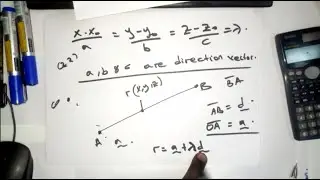 x-x₀/a = y-y₀/b = z-z₀/c = λ.
a, b & c are direction vector.
r(x,y,z)
B
A
a
AB = d
OA = a
r = a + λd